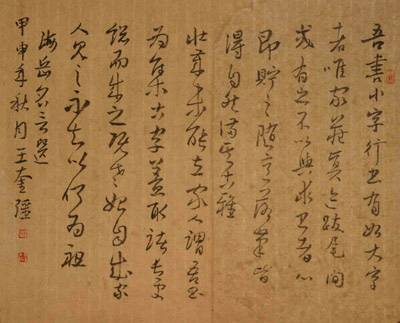 吾書小字行書有如大字
者唯家藏真迹跋尾間
或有之不以與求書者心
既貯之隨意落筆皆
得自然備其古雅
壯歲未能立家人謂吾書
為集古字蓋取諸長處
總而成之既老始自成家
人見之不知以何為祖
海岳名言選
甲申年秋月王奎疆